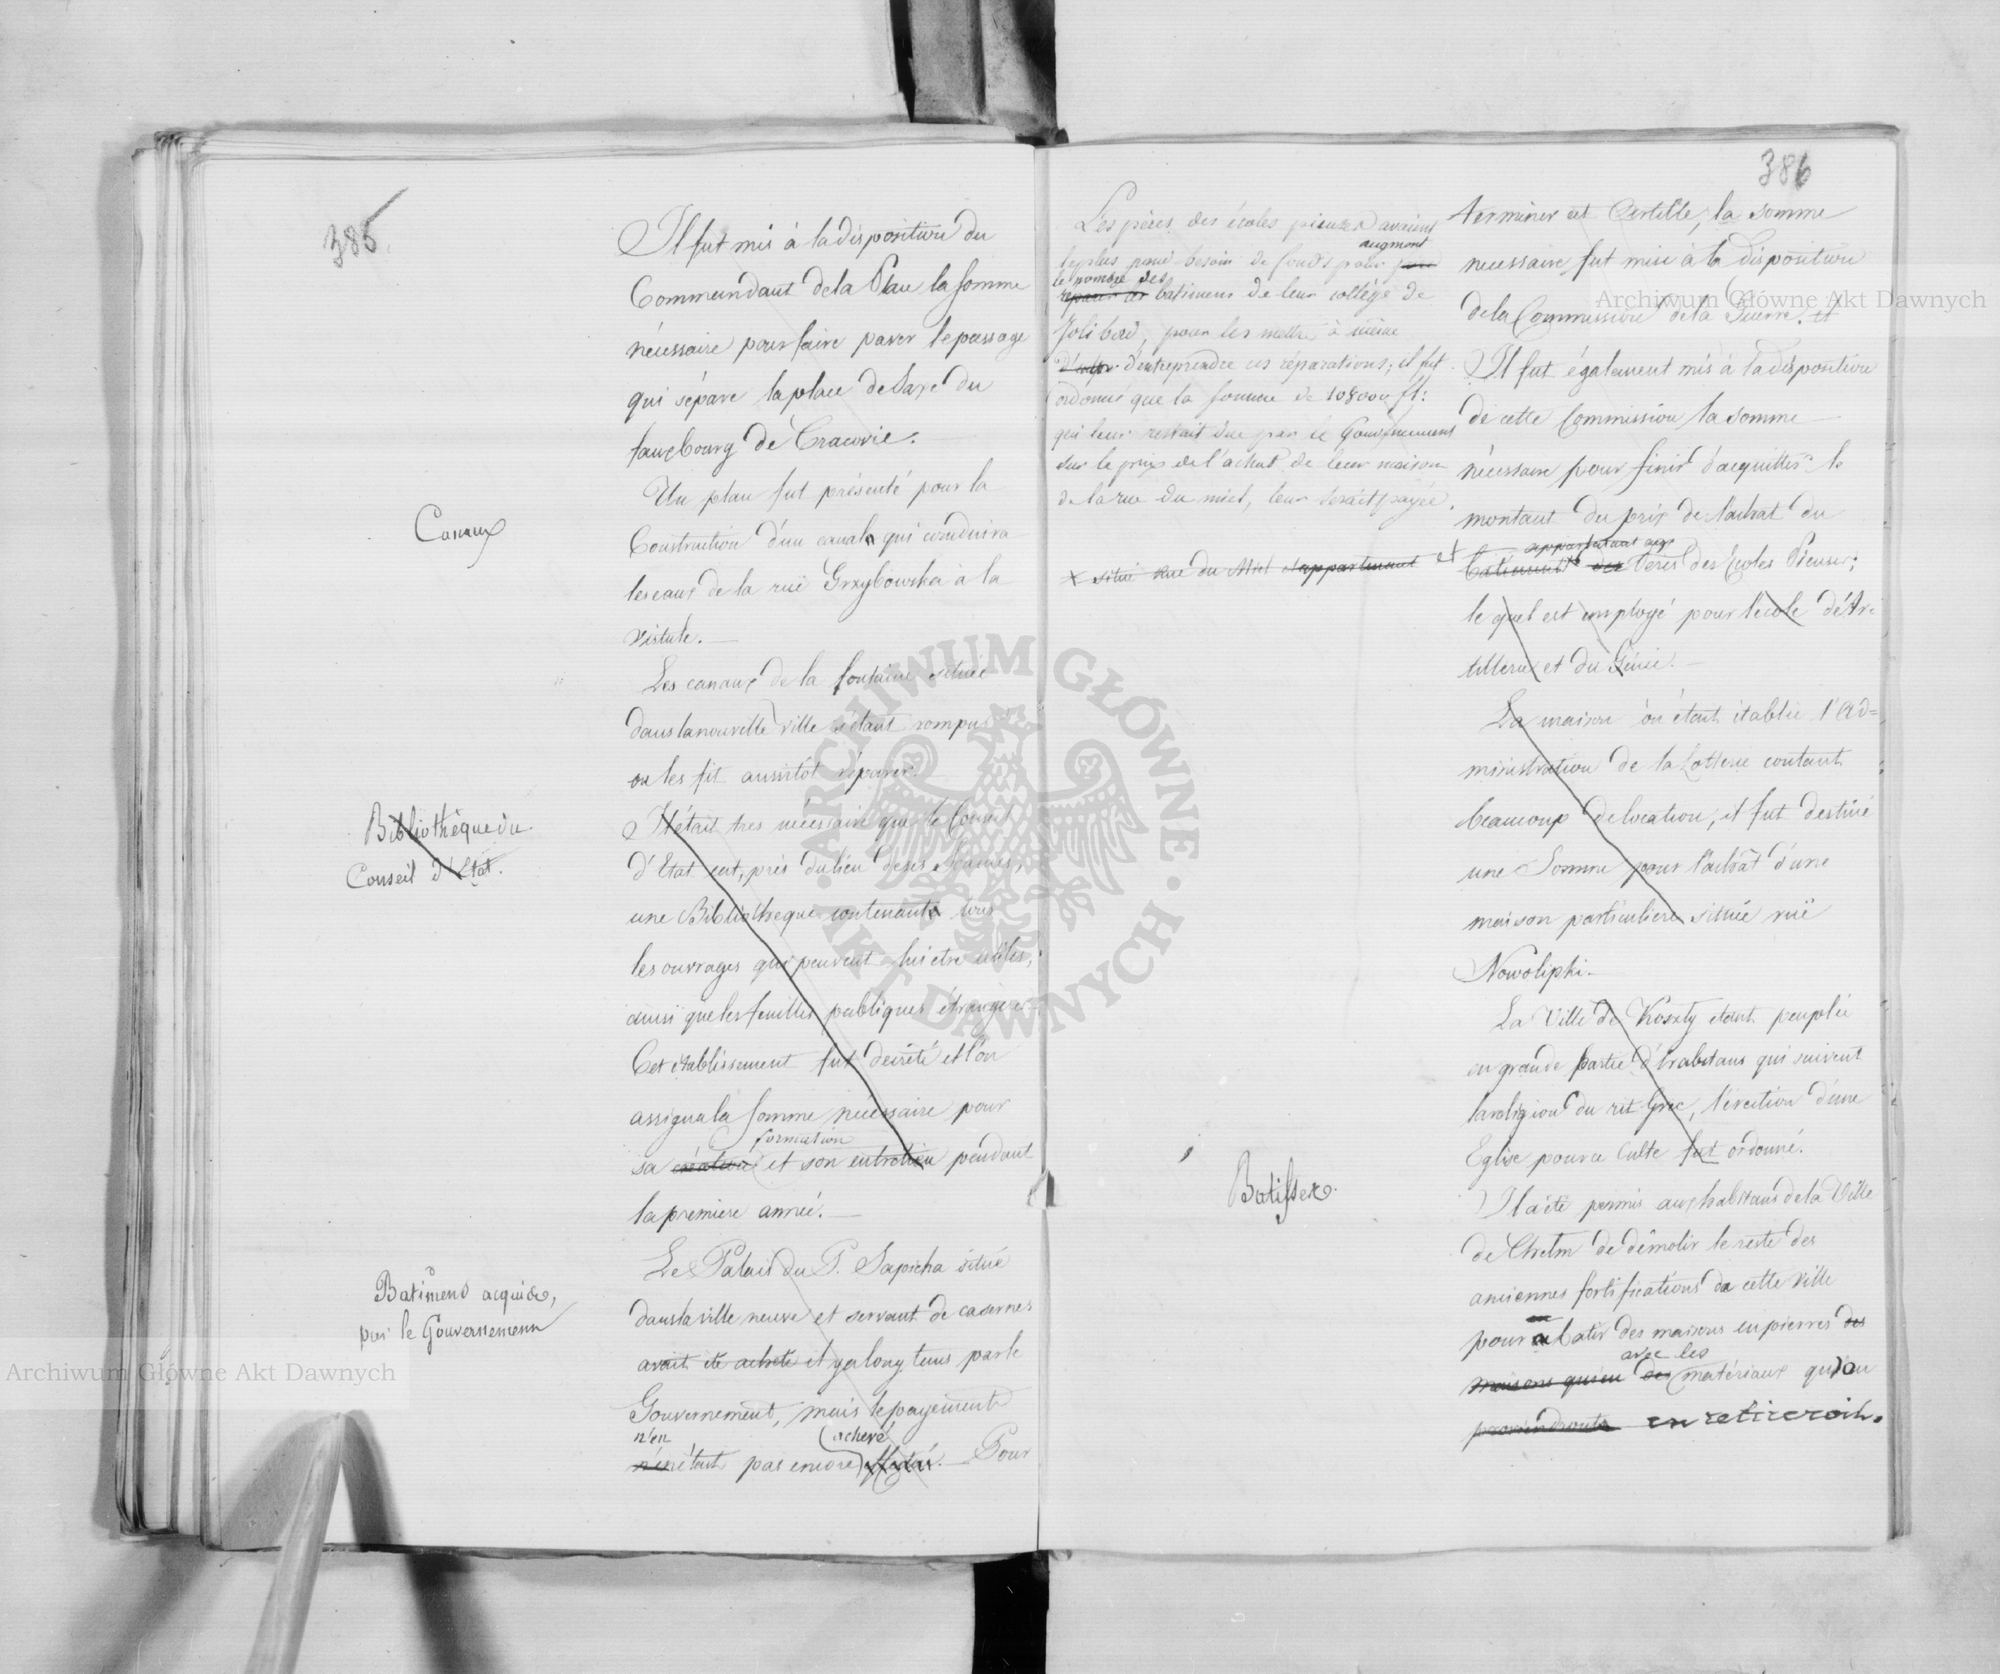 385
Il fut mis à la disposition du
Commandant de la Place la somme
nécessaire pour faire paver le passage
qui sépare la place de Saxe du
fauxbourg de Cracovie. —
Canaux
Un plan fut présenté pour la
Construction d'un canal qui conduira
les eaux de la rüe Grzybowska à la
Vistule. —
Les canaux de la fontaine située
dans la nouvelle ville s'étant rompus
on les fit aussitôt réparer.
Bibliothèque du
Conseil d'Etat.
Il était très nécessaire que le Conseil
d'Etat eut, près du lieu de ses séances,
une Bibliothèque contenant tous
les ouvrages qui peuvent lui être utiles,
ainsi que les feuilles publiques étrangeres.
Cet établissement fut décrété et l'on
assigna la somme nécessaire pour
formation
sa création et son entretien pendant
la premiere année. —
Batimens acquis,
par le Gouvernement
Le Palais du P. Sapieha situé
dans la ville neuve et servant de casernes
avait été acheté il y a long tems par le
Gouvernement, mais le payement
n'en achevé
n'en étant pas encore effectué. — Pour
386
Les pères des écoles pieuses avaient
le plus grand besoin de fonds pour
augment
le nombre des
réparer les batimens de leur collége de
Jolibord, pour les mettre à même
d'entreprendre ces réparations; il fut
ordonné que la somme de 108000 fl:
qui leur restait due par le Gouvernement
sur le prix de l'achat de leur maison
de la rue du miel, leur serait payée.
x situé rue du Miel appartenant et
terminer cet Article, la somme
necessaire fut mise à la disposition
de la Commission de la Guerre. et
Il fut également mis à la disposition
de cette Commission la somme
nécessaire pour finir d'acquitter le
montant du prix de l'achat du
appartenant aux
batiment des Péres des Ecoles Pieuses;
le quel est employé pour l'école d'Ar-
tillerie et du Génie. —
La maison où étant établie l'Ad=
ministration de la Lotterie coutant
beaucoup de location, il fut destiné
une Somme pour l'achat d'une
maison particuliere située rüe
Nowolipki. —
La Ville de Koszty étant peuplée
en grande partie d'habitans qui suivent
la religion du rit Grec, l'érection d'une
Eglise pour ce Culte fut ordonné.
Batisses.
Il a été permis aux habitans de la Ville
de Chelm de démolir le reste des
anciennes fortifications de cette ville
pour batir des maisons en pierres des
avec les
maisons qu'en des matériaux qu'on
proviendront en retireroit.
Archiwum Główne Akt Dawnych
Archiwum Główne Akt Dawnych
ARCHIWUM GŁÓWNE · AKT DAWNYCH ·